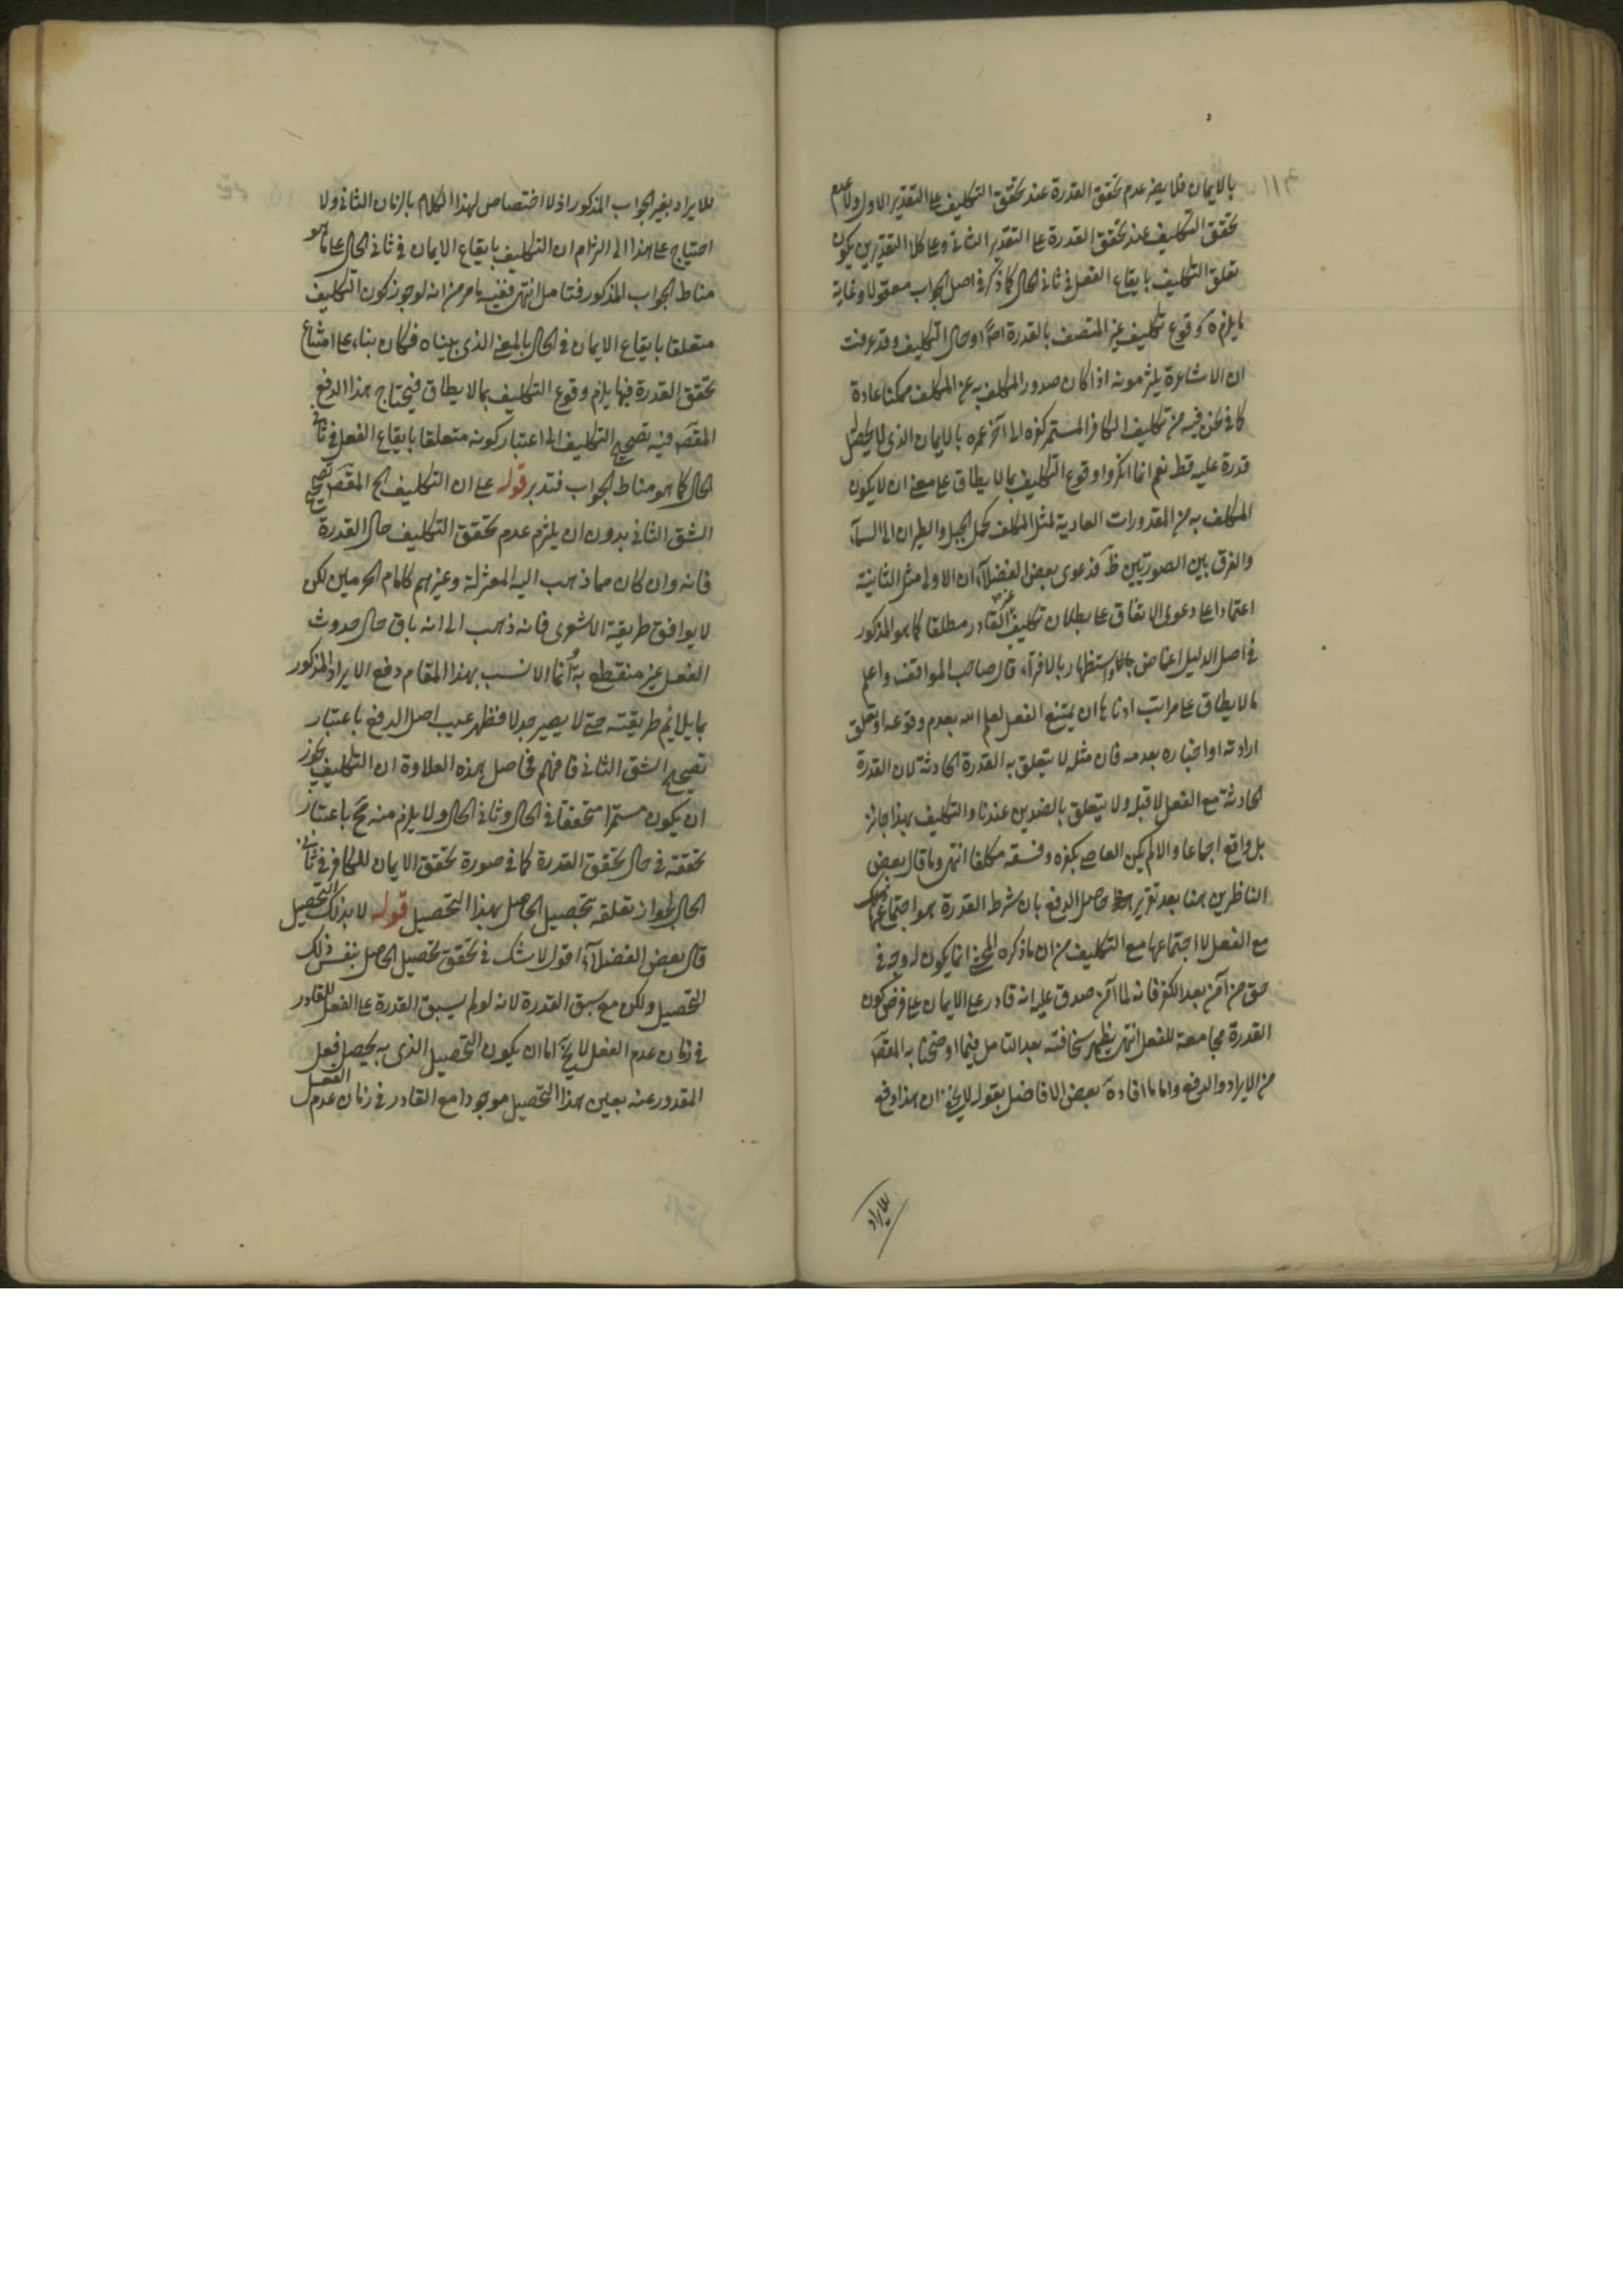 بالايمان فلا يضر عدم تحقق القدرة عند تحقق التكليف على التقدير الاول ولا عدم
تحقق التكليف عند تحقق القدرة على التقدير الثانى وعلى كلا التقديرين يكون
تعلق التكليف بايقاع الفعل فى ثانى الحال كما ذكر فى اصل الجواب معقولا وغاية
ما يلزمه وقوع تكليف غير المتصف بالقدرة او حال التكليف وقد عرفت
ان الاشاعرة يلتزمونه اذا كان صدور المكلف به عن المكلف ممكنا عادة
كما فى نحن فيه من تكليف الكافر المستمر كفره الى آخر عمره بالايمان الذى لا يحصل
قدرة عليه قط نعم انما انكروا وقوع التكليف بما لا يطاق على معنى ان لا يكون
المكلف به من المقدورات العادية لمثل المكلف كحمل الجبل والطيران الى السمآء
والفرق بين الصورتين ظ فدعوى بعض الفضلآء ان الاولى مثل الثانية
اعتمادا على دعوى الاتفاق على بطلان تكليف غير القادر مطلقا كما هو المذكور
فى اصل الدليل اغماض واستظهار بالافرآء قال صاحب المواقف واعلم
ما لا يطاق على مراتب ادناها ان يمتنع الفعل لعلم الله بعدم وقوعه او تعلق
ارادته او اخباره بعدمه فان مثله لا يتعلق به القدرة الحادثة لان القدرة
الحادثة مع الفعل لا قبله ولا يتعلق بالضدين عندنا والتكليف بهذا جائز
بل واقع اجماعا والا لم يكن العاصى بكفره وفسقه مكلفا انتهى وما قال بعض
الناظرين هنا بعد تقرير حاصل الدفع بان شرط القدرة هو اجتماعها
مع الفعل لا اجتماعها مع التكليف من ان ما ذكره المحشى انما يكون له وجه فى
حق من آمن بعد الكفر فانه لما آمن صدق عليه انه قادر على الايمان على فرض كون
القدرة مجامعة للفعل انتهى يظهر سخافته بعد التامل فيما اوضحنا به المقص
من الايراد والدفع واما ما افاده بعض الافاضل بقوله لا يخفى ان هذا دفع
للايراد
للايراد بغير الجواب المذكور اذ لا اختصاص لهذا الكلام بالزمان الثانى ولا
احتياج على هذا الى الزام ان التكليف بايقاع الايمان فى ثانى الحال على ما هو
مناط الجواب المذكور فتامل انتهى ففيه ما مر من انه لو جوز كون التكليف
متعلقا بايقاع الايمان فى الحال بالمعنى الذى بيناه فكان بناء على امتناع
تحقق القدرة فيها يلزم وقوع التكليف بما لا يطاق فيحتاج هذا الدفع
المقص فيه تصحيح التكليف الى اعتبار كونه متعلقا بايقاع الفعل فى ثانى
الحال كما هو مناط الجواب فتدبر قوله على ان التكليف الخ المقص تصحيح
الشق الثانى بدون ان يلزم عدم تحقق التكليف حال القدرة
فانه وان كان مما ذهب اليه المعتزلة وغيرهم كامام الحرمين لكن
لا يوافق طريقة الاشعرى فانه ذهب الى انه باق حال حدوث
الفعل غير منقطع به وانما الانسب بهذا المقام دفع الايراد المذكور
بما يلائم طريقته حتى لا يصير جدلا فظهر عيب اصل الدفع باعتبار
تصحيح الشق الثانى فافهم فحاصل هذه العلاوة ان التكليف يجوز
ان يكون مستمرا متحققا فى الحال وثانى الحال ولا يلزم منه مح باعتبار
تحققه فى حال تحقق القدرة كما فى صورة تحقق الايمان للكافر فى ثانى
الحال لجواز تعلقه بتحصيل الحاصل بهذا التحصيل قوله لا بذلك التحصيل
قال بعض الفضلآء اقول لا شك فى تحقق تحصيل الحاصل بنفس ذلك
التحصيل ولكن مع سبق القدرة لانه لو لم يسبق القدرة على الفعل للقادر
فى زمان عدم الفعل لا يخ اما ان يكون التحصيل الذى به يحصل فعل
المقدور عنه بعين هذا التحصيل موجودا مع القادر فى زمان عدم الفعل